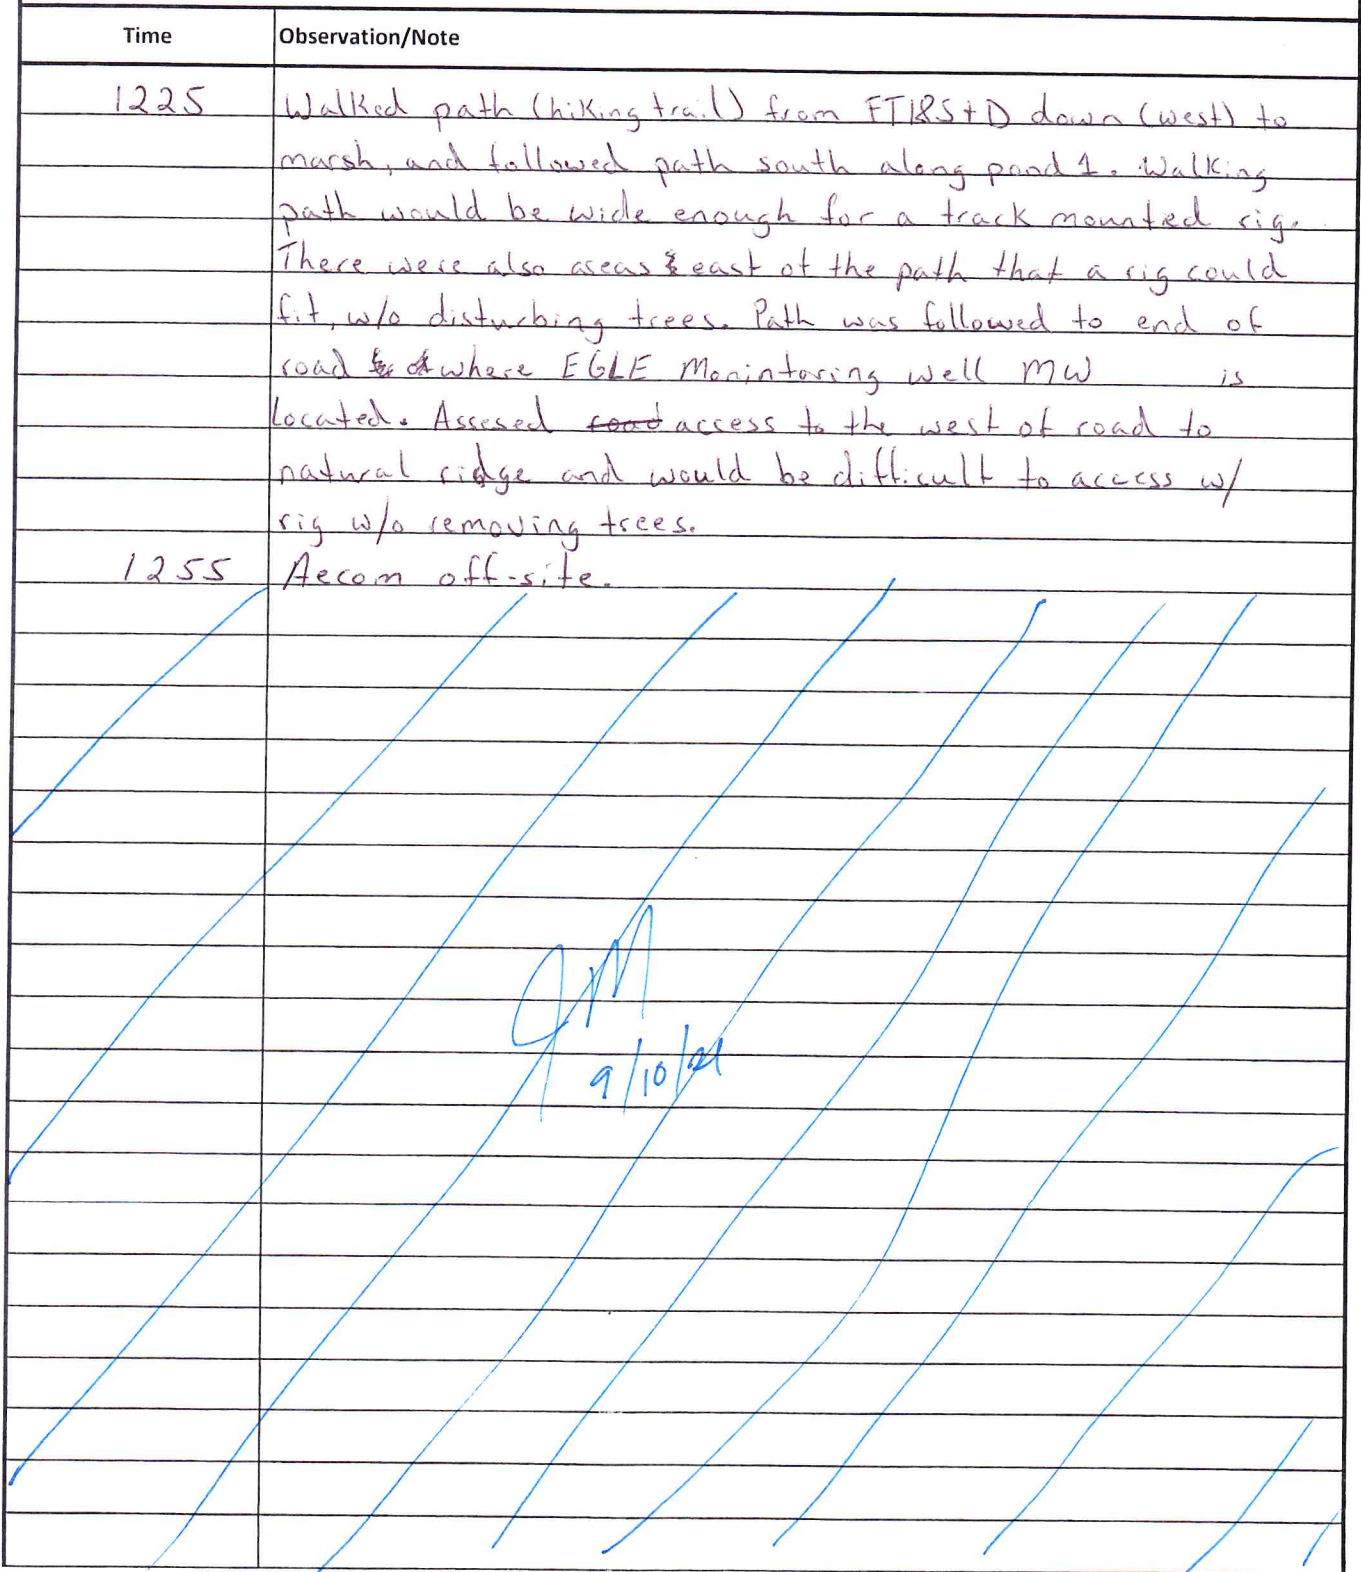 Time Observation/Note
1225 Walked path (hiking trail) from FT18S+D down (west) to
marsh, and followed path south along pond 1. Walking
path would be wide enough for a track mounted rig.
There were also areas east of the path that a rig could
fit, w/o disturbing trees. Path was followed to end of
road where EGLE Monintoring well MW is
located. Assesed road access to the west of road to
natural ridge and would be difficult to access w/
rig w/o removing trees.
1255 Aecom off-site.
JM
9/10/21